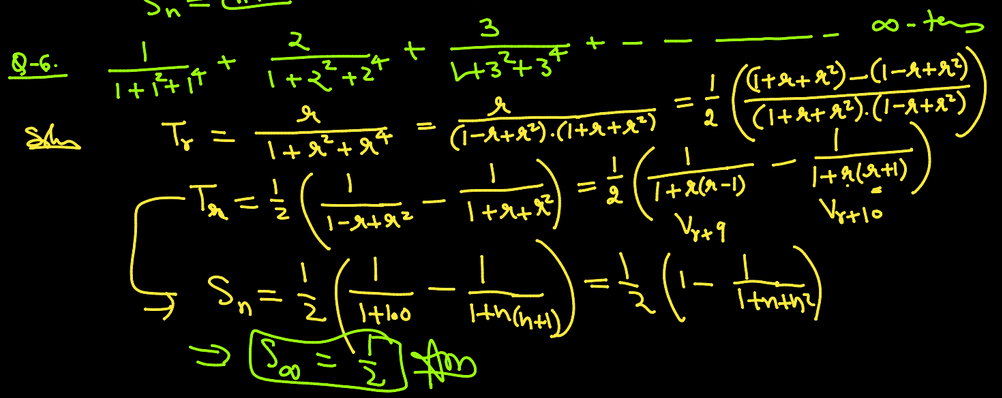 Sₙ =
Q-6. 1/(1+1²+1⁴) + 2/(1+2²+2⁴) + 3/(1+3²+3⁴) + - - - - ∞-terms
Soln Tᵣ = r/(1+r²+r⁴) = r/((1-r+r²).(1+r+r²)) = 1/2 (((1+r+r²)-(1-r+r²))/((1+r+r²).(1-r+r²)))
Tᵣ = 1/2 (1/(1-r+r²) - 1/(1+r+r²)) = 1/2 (1/(1+r(r-1)) - 1/(1+r(r+1)))
Vᵣ₊₉ Vᵣ₊₁₀
→ Sₙ = 1/2 (1/(1+1.0) - 1/(1+n(n+1))) = 1/2 (1 - 1/(1+n+n²))
⇒ S∞ = 1/2 Ans